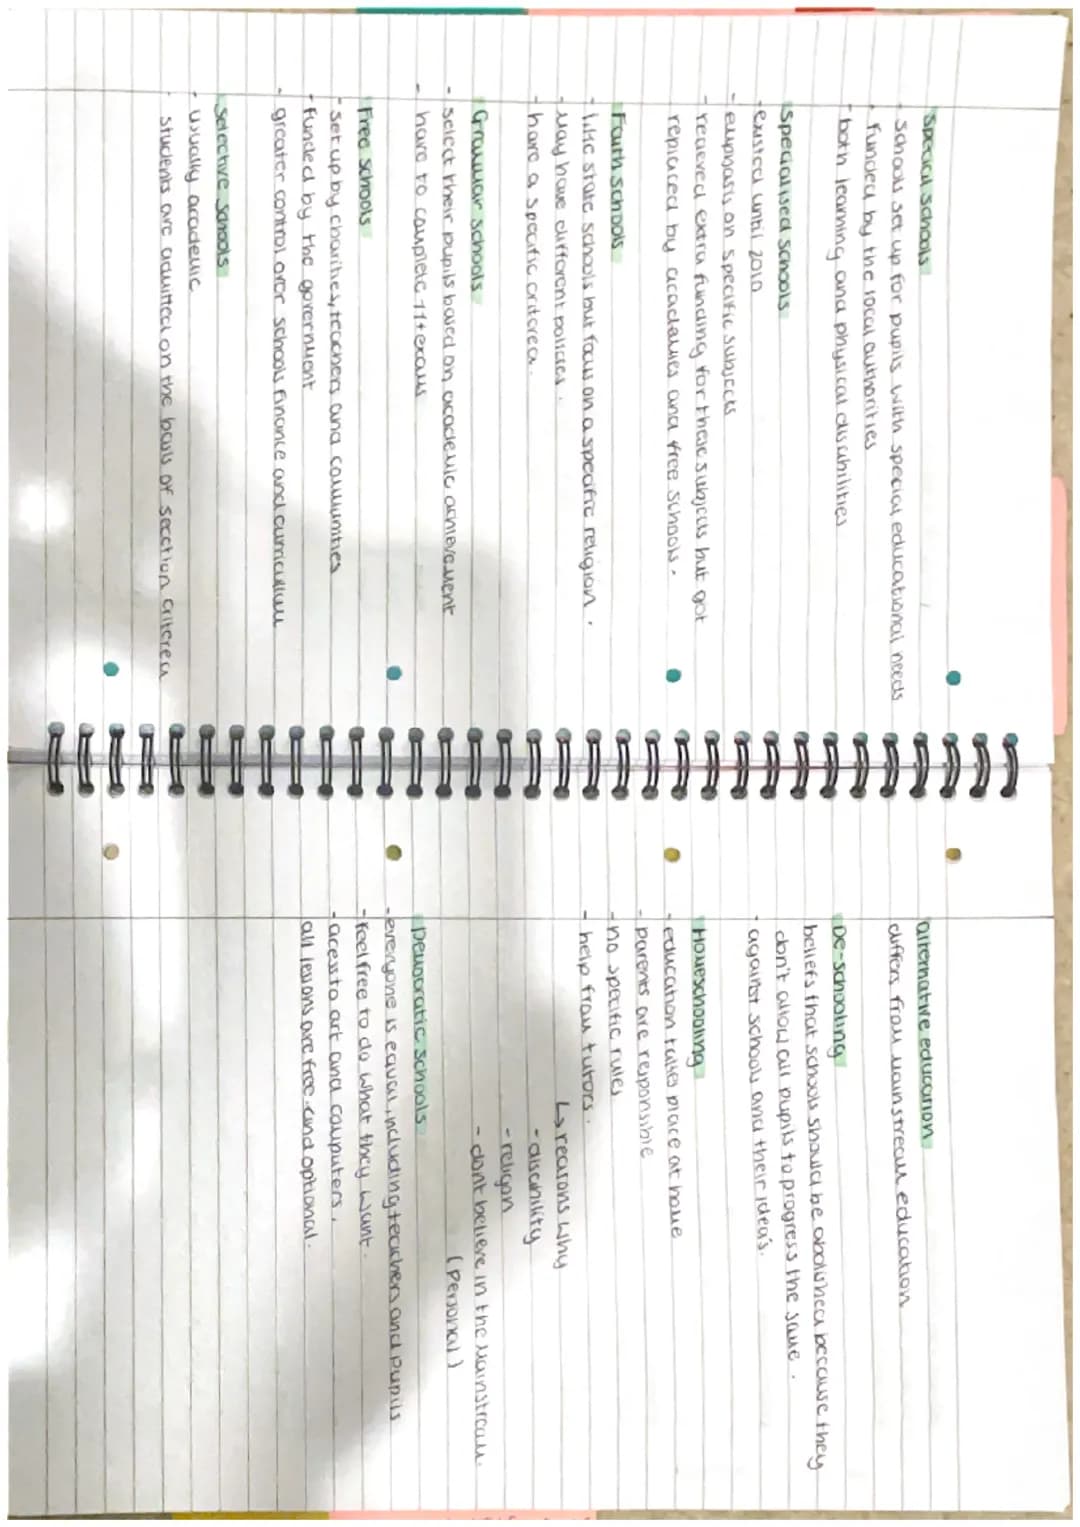 Special schools
- schools set up for pupils with special educational needs
- funded by the local authorities
- both learning and physical disabilities
Specialised schools
- existed until 2010
- emphasis on specific subjects
- recieved extra funding for these subjects but got
replaced by academies and free schools.
Faith schools
- like state schools but focus on a specific religion.
- may have different policies.
- have a specific criterea.
Grammar schools
- select their pupils based on academic achievement
- have to complete 11+ exams
Free schools
- set up by charities, teachers and communties
- funded by the government
- greater control over schools finance and curriculum
Selective schools
- usually academic
- students are admitted on the basis of section criterea
alternative education
differs from mainstream education
De-schooling
beliefs that schools should be abolished because they
don't allow all pupils to progress the same.
- against schools and their idea's.
Homeschooling
- education takes place at home
- parents are responsible
- no specific rules
- help from tutors.
↳ reasons why
- disability
- religon
- dont believe in the mainstream.
(personal)
Democratic schools
- everyone is equal, including teachers and pupils
- feel free to do what they want.
- acess to art and computers.
all lessons are free and optional.